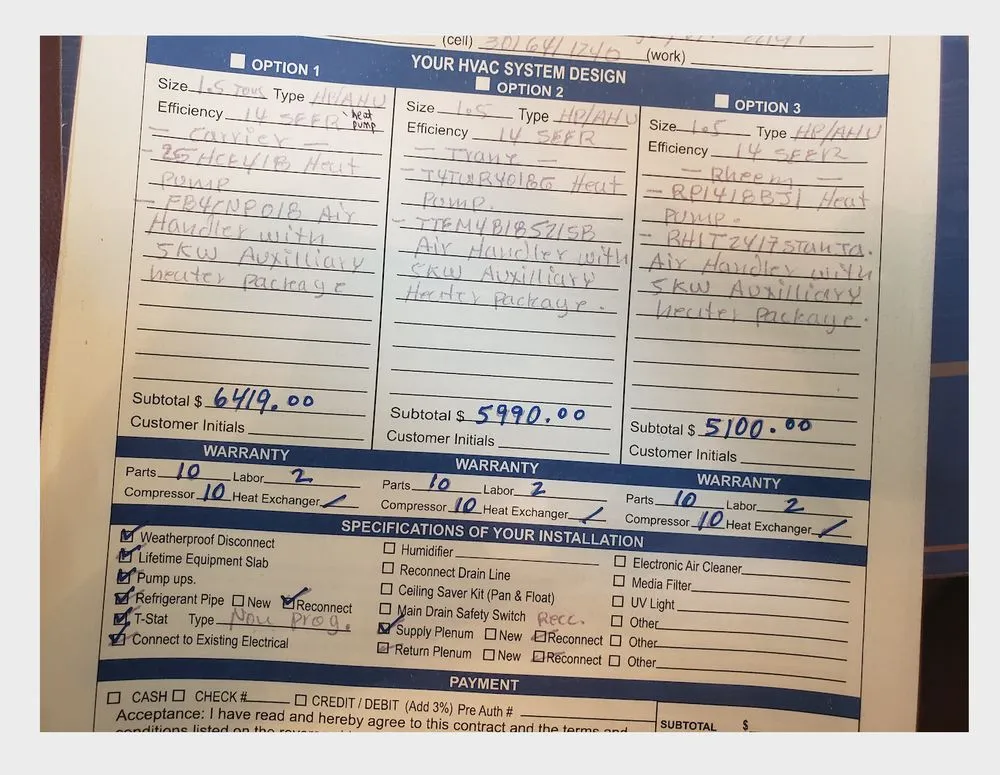 (cell) 301641 1240 (work)
YOUR HVAC SYSTEM DESIGN
OPTION 1
Size 1.5 Tons Type HP/AHU
Efficiency 14 SEER heat pump
- Carrier -
- 25HCE418 Heat
Pump
- FB4CNP018 Air
Handler with
5KW Auxilliary
heater package
Subtotal $ 6419.00
Customer Initials
OPTION 2
Size 1.5 Type HP/AHU
Efficiency 14 SEER
- Trane -
- T4TWR4018G Heat
Pump.
- TTEM4B18S21SB
Air Handler with
5KW Auxilliary
Heater package.
Subtotal $ 5990.00
Customer Initials
OPTION 3
Size 1.5 Type HP/AHU
Efficiency 14 SEER
- Rheem -
- RP1418BJ1 Heat
Pump.
- RH1T2417STANJA.
Air Handler with
5KW Auxilliary
heater package.
Subtotal $ 5100.00
Customer Initials
WARRANTY
Parts 10 Labor 2
Compressor 10 Heat Exchanger /
WARRANTY
Parts 10 Labor 2
Compressor 10 Heat Exchanger /
WARRANTY
Parts 10 Labor 2
Compressor 10 Heat Exchanger /
SPECIFICATIONS OF YOUR INSTALLATION
Weatherproof Disconnect
Lifetime Equipment Slab
Pump ups.
Refrigerant Pipe New Reconnect
T-Stat Type Non prog.
Connect to Existing Electrical
Humidifier
Reconnect Drain Line
Ceiling Saver Kit (Pan & Float)
Main Drain Safety Switch Recc.
Supply Plenum New Reconnect
Return Plenum New Reconnect
Electronic Air Cleaner
Media Filter
UV Light
Other
Other
Other
PAYMENT
CASH CHECK # CREDIT / DEBIT (Add 3%) Pre Auth #
Acceptance: I have read and hereby agree to this contract and the terms and
conditions listed on the
SUBTOTAL $